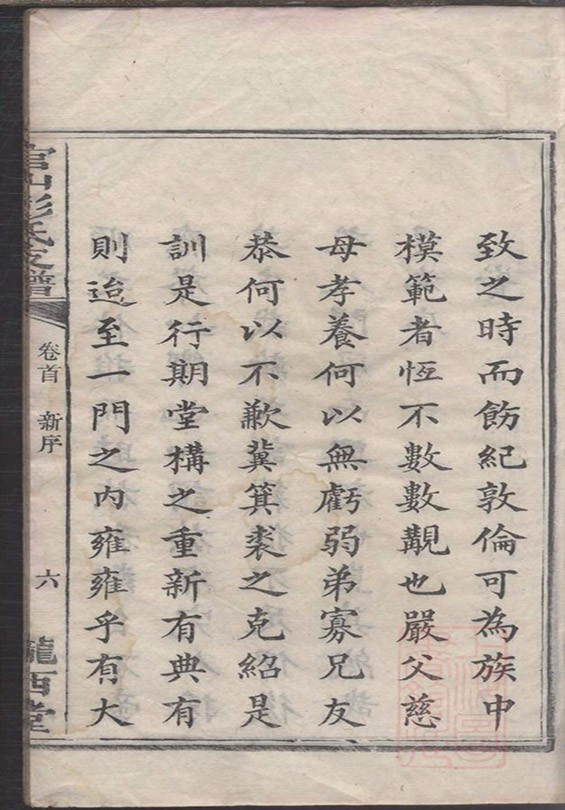 致之時而飭紀敦倫可為族中
模範者恆不數數覯也嚴父慈
母孝養何以無虧弱弟寡兄友
恭何以不歉冀箕裘之克紹是
訓是行期堂構之重新有典有
則迨至一門之內雍雍乎有大
官山彭氏支譜
卷首 新序
六
隴西堂